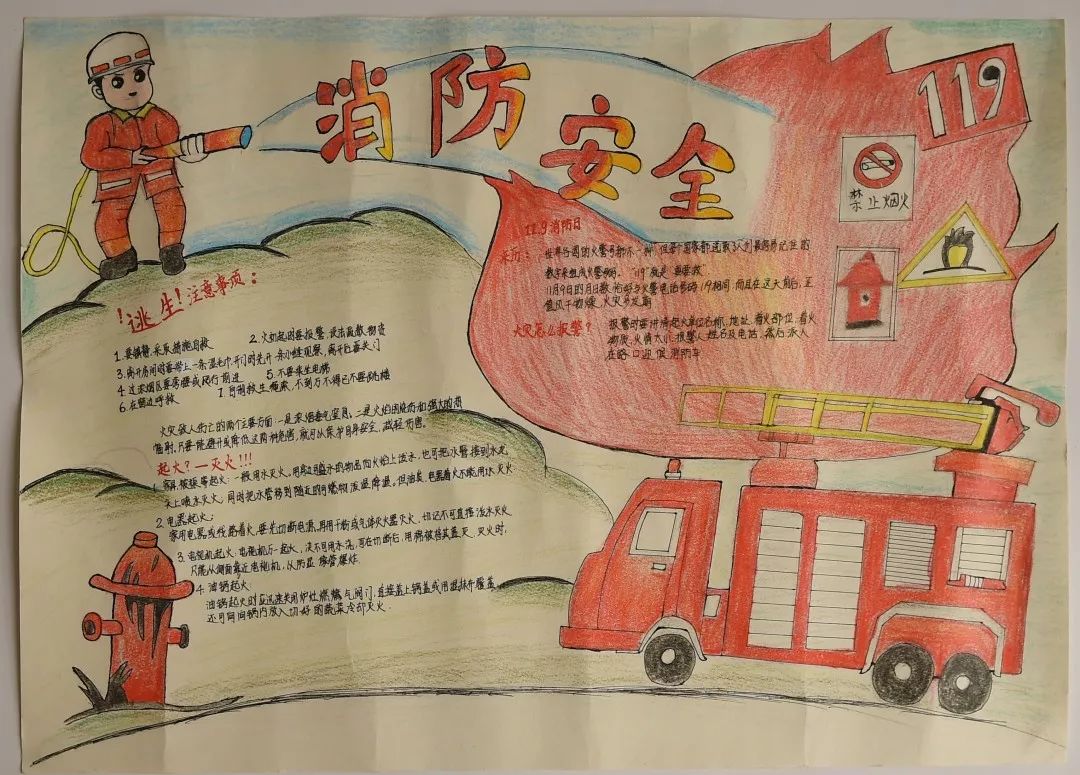 消防安全
119
禁止烟火
11.9消防日
来历：世界各国的火警号都不一样，但每个国家都选取3人们最容易记住的
数字来组成火警号码，"119"就是"要要救"
11月9日的月日数恰好与火警电话号码119相同，而且在这天前后，正
值风干物燥，火灾易发期
火灾怎么报警？
报警时要讲清起火单位名称、地址、着火部位、着火
物质、火情大小、报警人姓名及电话，然后派人
在路口迎候消防车
！逃生！注意事项：
1.要镇静，采取措施自救
2.火初起时要报警，设法疏散物资
3.离开房间时要带上一条湿毛巾，开门时先开一条小缝观察，离开后要关门
4.过浓烟区要弯腰或爬行前进
5.不要乘坐电梯
6.在窗边呼救
7.自制救生绳索，不到万不得已不要跳楼
火灾致人伤亡的两个主要方面：一是浓烟毒气窒息，二是火焰的烧伤和强大的热
辐射，只要能避开或降低这两种危害，就可以保护自身安全，减轻伤害。
起火？—灭火!!!
1.家具、被褥等起火：一般用水灭火，用身边可盛水的物品向火焰上泼水，也可把水管接到水龙
头上喷水灭火，同时把水管移到附近的可燃物泼湿降温。但油类、电器着火不能用水灭火
2.电器起火：
家用电器或线路着火，要先切断电源，再用干粉或气体灭火器灭火，切记不可直接泼水灭火
3.电视机起火：电视机万一起火，决不可用水浇，可在切断后，用棉被将其盖灭，灭火时，
只能从侧面靠近电视机，以防显像管爆炸.
4.油锅起火
油锅起火时应迅速关闭炉灶燃气阀门，直接盖上锅盖或用湿抹布覆盖，
还可向锅内放入切好的蔬菜冷却灭火.